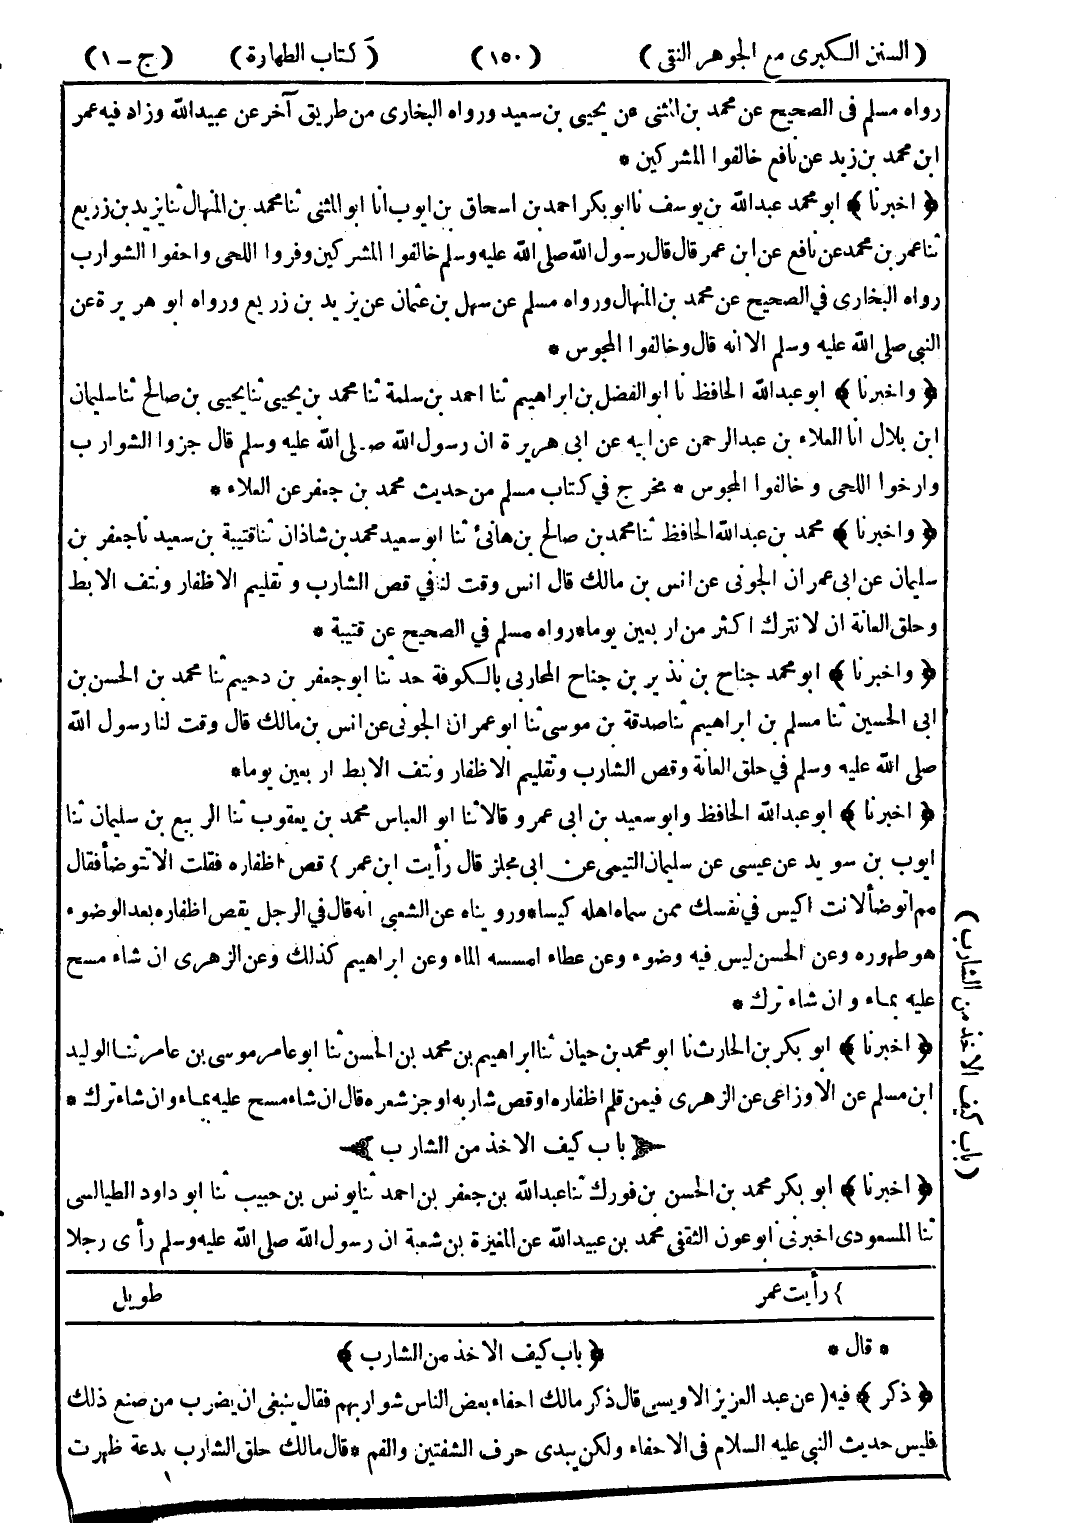 ( السنن الكبرى مع الجوهر النقى ) ( ١٥٠ ) ( كتاب الطهارة ) ( ج - ١ )
رواه مسلم فى الصحيح عن محمد بن المثنى عن يحيى بن سعيد ورواه البخارى من طريق آخر عن عبيدالله وزاد فيه عمر
ابن محمد بن زيد عن نافع خالفوا المشركين *
﴿ اخبرنا ﴾ ابو محمد عبدالله بن يوسف نا ابوبكر احمد بن اسحاق بن ايوب أنا ابو المثنى ثنا محمد بن المنهال ثنا يزيد بن زريع
ثنا عمر بن محمد عن نافع عن ابن عمر قال قال رسول الله صلى الله عليه وسلم خالفوا المشركين وفروا اللحى واحفوا الشوارب
رواه البخارى في الصحيح عن محمد بن المنهال ورواه مسلم عن سهل بن عثمان عن يزيد بن زريع ورواه ابو هريرة عن
النبى صلى الله عليه وسلم الا انه قال وخالفوا المجوس *
﴿ واخبرنا ﴾ ابو عبدالله الحافظ نا ابو الفضل بن ابراهيم ثنا احمد بن سلمة ثنا محمد بن يحيى ثنا يحيى بن صالح ثنا سليمان
ابن بلال انا العلاء بن عبدالرحمن عن ابيه عن ابى هريرة ان رسول الله صلى الله عليه وسلم قال جزوا الشوارب
وارخوا اللحى وخالفوا المجوس * مخرج في كتاب مسلم من حديث محمد بن جعفر عن العلاء *
﴿ واخبرنا ﴾ محمد بن عبدالله الحافظ ثنا محمد بن صالح بن هانئ ثنا ابو سعيد محمد بن شاذان ثنا قتيبة بن سعيد نا جعفر بن
سليمان عن ابى عمران الجونى عن انس بن مالك قال انس وقت لنا في قص الشارب و تقليم الاظفار ونتف الابط
وحلق العانة ان لا نترك اكثر من اربعين يوما * رواه مسلم في الصحيح عن قتيبة *
﴿ واخبرنا ﴾ ابو محمد جناح بن نذير بن جناح المحاربى بالكوفة حدثنا ابو جعفر بن دحيم ثنا محمد بن الحسن بن
ابى الحسين ثنا مسلم بن ابراهيم ثنا صدقة بن موسى ثنا ابو عمران الجونى عن انس بن مالك قال وقت لنا رسول الله
صلى الله عليه وسلم في حلق العانة وقص الشارب وتقليم الاظفار ونتف الابط اربعين يوما *
﴿ اخبرنا ﴾ ابو عبدالله الحافظ وابو سعيد بن ابى عمرو قالا ثنا ابو العباس محمد بن يعقوب ثنا الربيع بن سليمان ثنا
ايوب بن سويد عن عيسى عن سليمان التيمى عن ابى مجلز قال رأيت ابن عمر } قص اظفاره فقلت الا تتوضأ فقال
مم اتوضأ لانت اكيس في نفسك ممن سماه اهله كيسا * وروينا ه عن الشعبى انه قال في الرجل يقص اظفاره بعد الوضوء
هو طهوره وعن الحسن ليس فيه وضوء وعن عطاء امسسه الماء وعن ابراهيم كذلك وعن الزهرى ان شاء مسح
عليه بماء وان شاء ترك *
﴿ اخبرنا ﴾ ابو بكر بن الحارث نا ابو محمد بن حيان ثنا ابراهيم بن محمد بن الحسن ثنا ابو عامر موسى بن عامر ثنا الوليد
ابن مسلم عن الاوزاعى عن الزهرى فيمن قلم اظفاره او قص شاربه او جز شعره قال ان شاء مسح عليه بماء وان شاء ترك *
باب كيف الاخذ من الشارب
﴿ اخبرنا ﴾ ابو بكر محمد بن الحسن بن فورك ثنا عبدالله بن جعفر بن احمد ثنا يونس بن حبيب ثنا ابو داود الطيالسى
ثنا المسعودى اخبرنى ابو عون الثقفى محمد بن عبيدالله عن المغيرة بن شعبة ان رسول الله صلى الله عليه وسلم رأى رجلا
( باب كيف الاخذ من الشارب )
} رأيت عمر طويل
* قال * ﴿ باب كيف الاخذ من الشارب ﴾
﴿ ذكر ﴾ فيه ( عن عبد العزيز الاويسى قال ذكر مالك احفاء بعض الناس شواربهم فقال ينبغى ان يضرب من صنع ذلك
فليس حديث النبى عليه السلام فى الاحفاء ولكن يبدى حرف الشفتين والفم * قال مالك حلق الشارب بدعة ظهرت